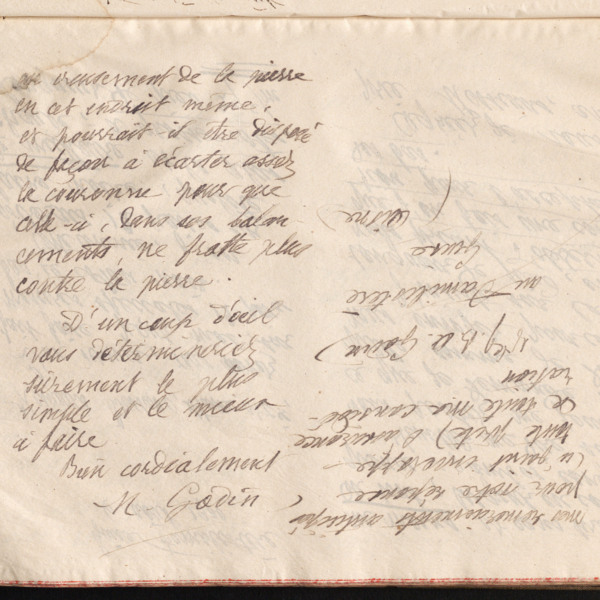 creusement de la pierre
en cet endroit même,
et pourrait-il être disposé
de façon à écarter assez
la couronne pour que
celle-ci, dans ses balan
cements, ne frotte plus
contre la pierre.
D'un coup d'œil
vous déterminerez
sûrement le plus
simple et le mieux
à faire
Bien cordialement
M Godin
mes remerciements anticipés
pour votre réponse
(ci joint enveloppe
toute prête) l'assurance
de toute ma considé-
ration
B. A. Godin)
au Familistère
Guise
(Aisne)